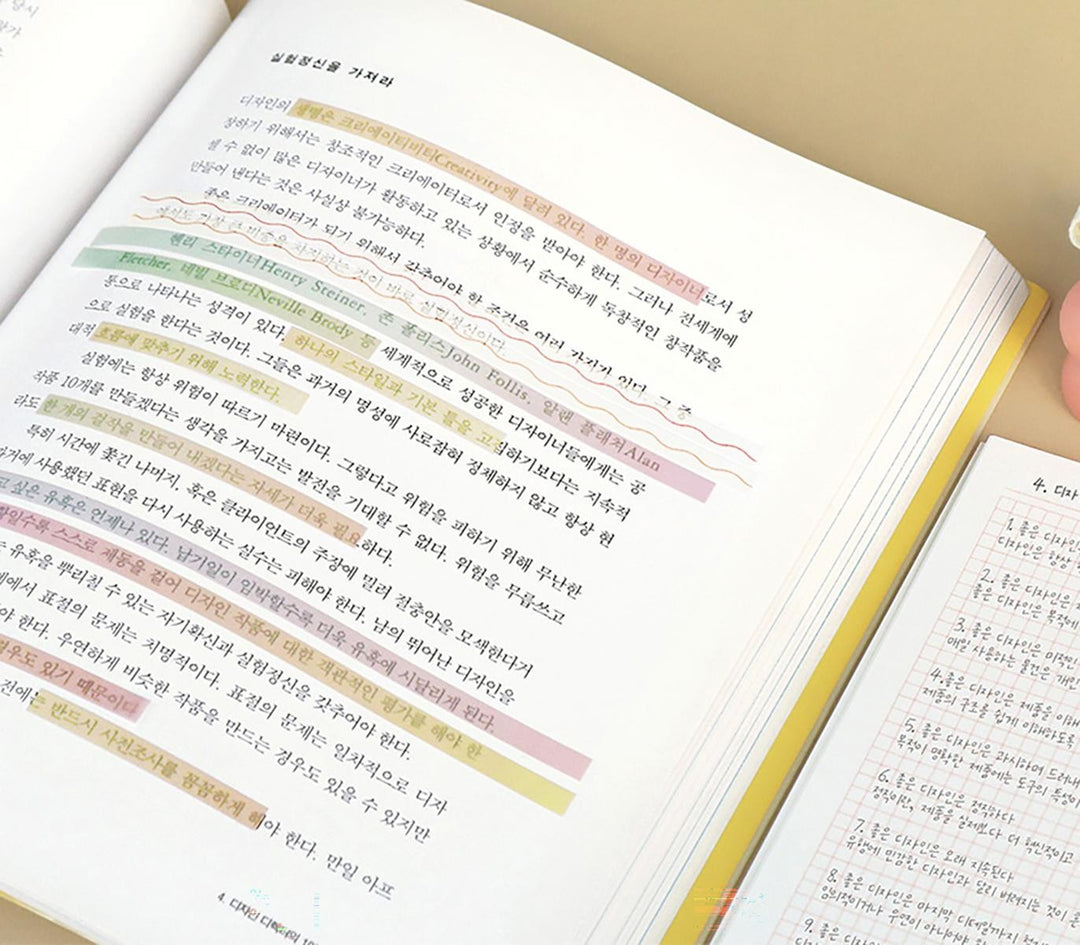 실험정신을 가져라
디자인의 생명은 크리에이티비티Creativity에 달려 있다. 한 명의 디자이너로서 성
장하기 위해서는 창조적인 크리에이터로서 인정을 받아야 한다. 그러나 전세계에
셀 수 없이 많은 디자이너가 활동하고 있는 상황에서 순수하게 독창적인 창작품을
만들어 낸다는 것은 사실상 불가능하다.
좋은 크리에이터가 되기 위해서 갖추어야 할 조건은 여러 가지가 있다. 그 중
에서도 가장 큰 비중을 차지하는 것이 바로 실험정신이다.
헨리 스타이너Henry Steiner, 존 폴리스John Follis, 알랜 플래처Alan
Fletcher, 네빌 브로디Neville Brody 등 세계적으로 성공한 디자이너들에게는 공
통으로 나타나는 성격이 있다. 하나의 스타일과 기본 틀을 고집하기보다는 지속적
으로 실험을 한다는 것이다. 그들은 과거의 명성에 사로잡혀 정체하지 않고 항상 현
대적 흐름에 맞추기 위해 노력한다.
실험에는 항상 위험이 따르기 마련이다. 그렇다고 위험을 피하기 위해 무난한
작품 10개를 만들겠다는 생각을 가지고는 발전을 기대할 수 없다. 위험을 무릅쓰고
라도 한 개의 걸작을 만들어 내겠다는 자세가 더욱 필요하다.
특히 시간에 쫓긴 나머지, 혹은 클라이언트의 주장에 밀려 절충안을 모색한다거
사용했던 표현을 다시 사용하는 실수는 피해야 한다. 남의 뛰어난 디자인을
싶은 유혹은 언제나 있다. 납기일이 임박할수록 더욱 유혹에 시달리게 된다.
스스로 제동을 걸어 디자인 작품에 대한 객관적인 평가를 해야 한
유혹을 뿌리칠 수 있는 자기확신과 실험정신을 갖추어야 한다.
표절의 문제는 치명적이다. 표절의 문제는 일차적으로 디자
한다. 우연하게 비슷한 작품을 만드는 경우도 있을 수 있지만
있기 때문이다
반드시 사전조사를 꼼꼼하게 해야 한다. 만일 아프
4. 디자인
4. 디자
1. 좋은 디자인
디자인은 항상
2. 좋은 디자인은
좋은 디자인은 목적에
3. 좋은 디자인은 미적인
매일 사용하는 물건은 개인
4. 좋은 디자인은 제품을 이해
제품의 구조를 쉽게 이해하도록
5. 좋은 디자인은 과시하며 드러내
목적이 명확한 제품에는 도구의 특성이
6. 좋은 디자인은 정직하다
정직이란, 제품을 실제보다 더 혁신적이고
7. 좋은 디자인은 오래 지속된다
유행에 민감한 디자인과 달리 버려지는 것이
8. 좋은 디자인은 마지막 디테일까지
임의적이거나 우연이 아니어야
9. 좋은